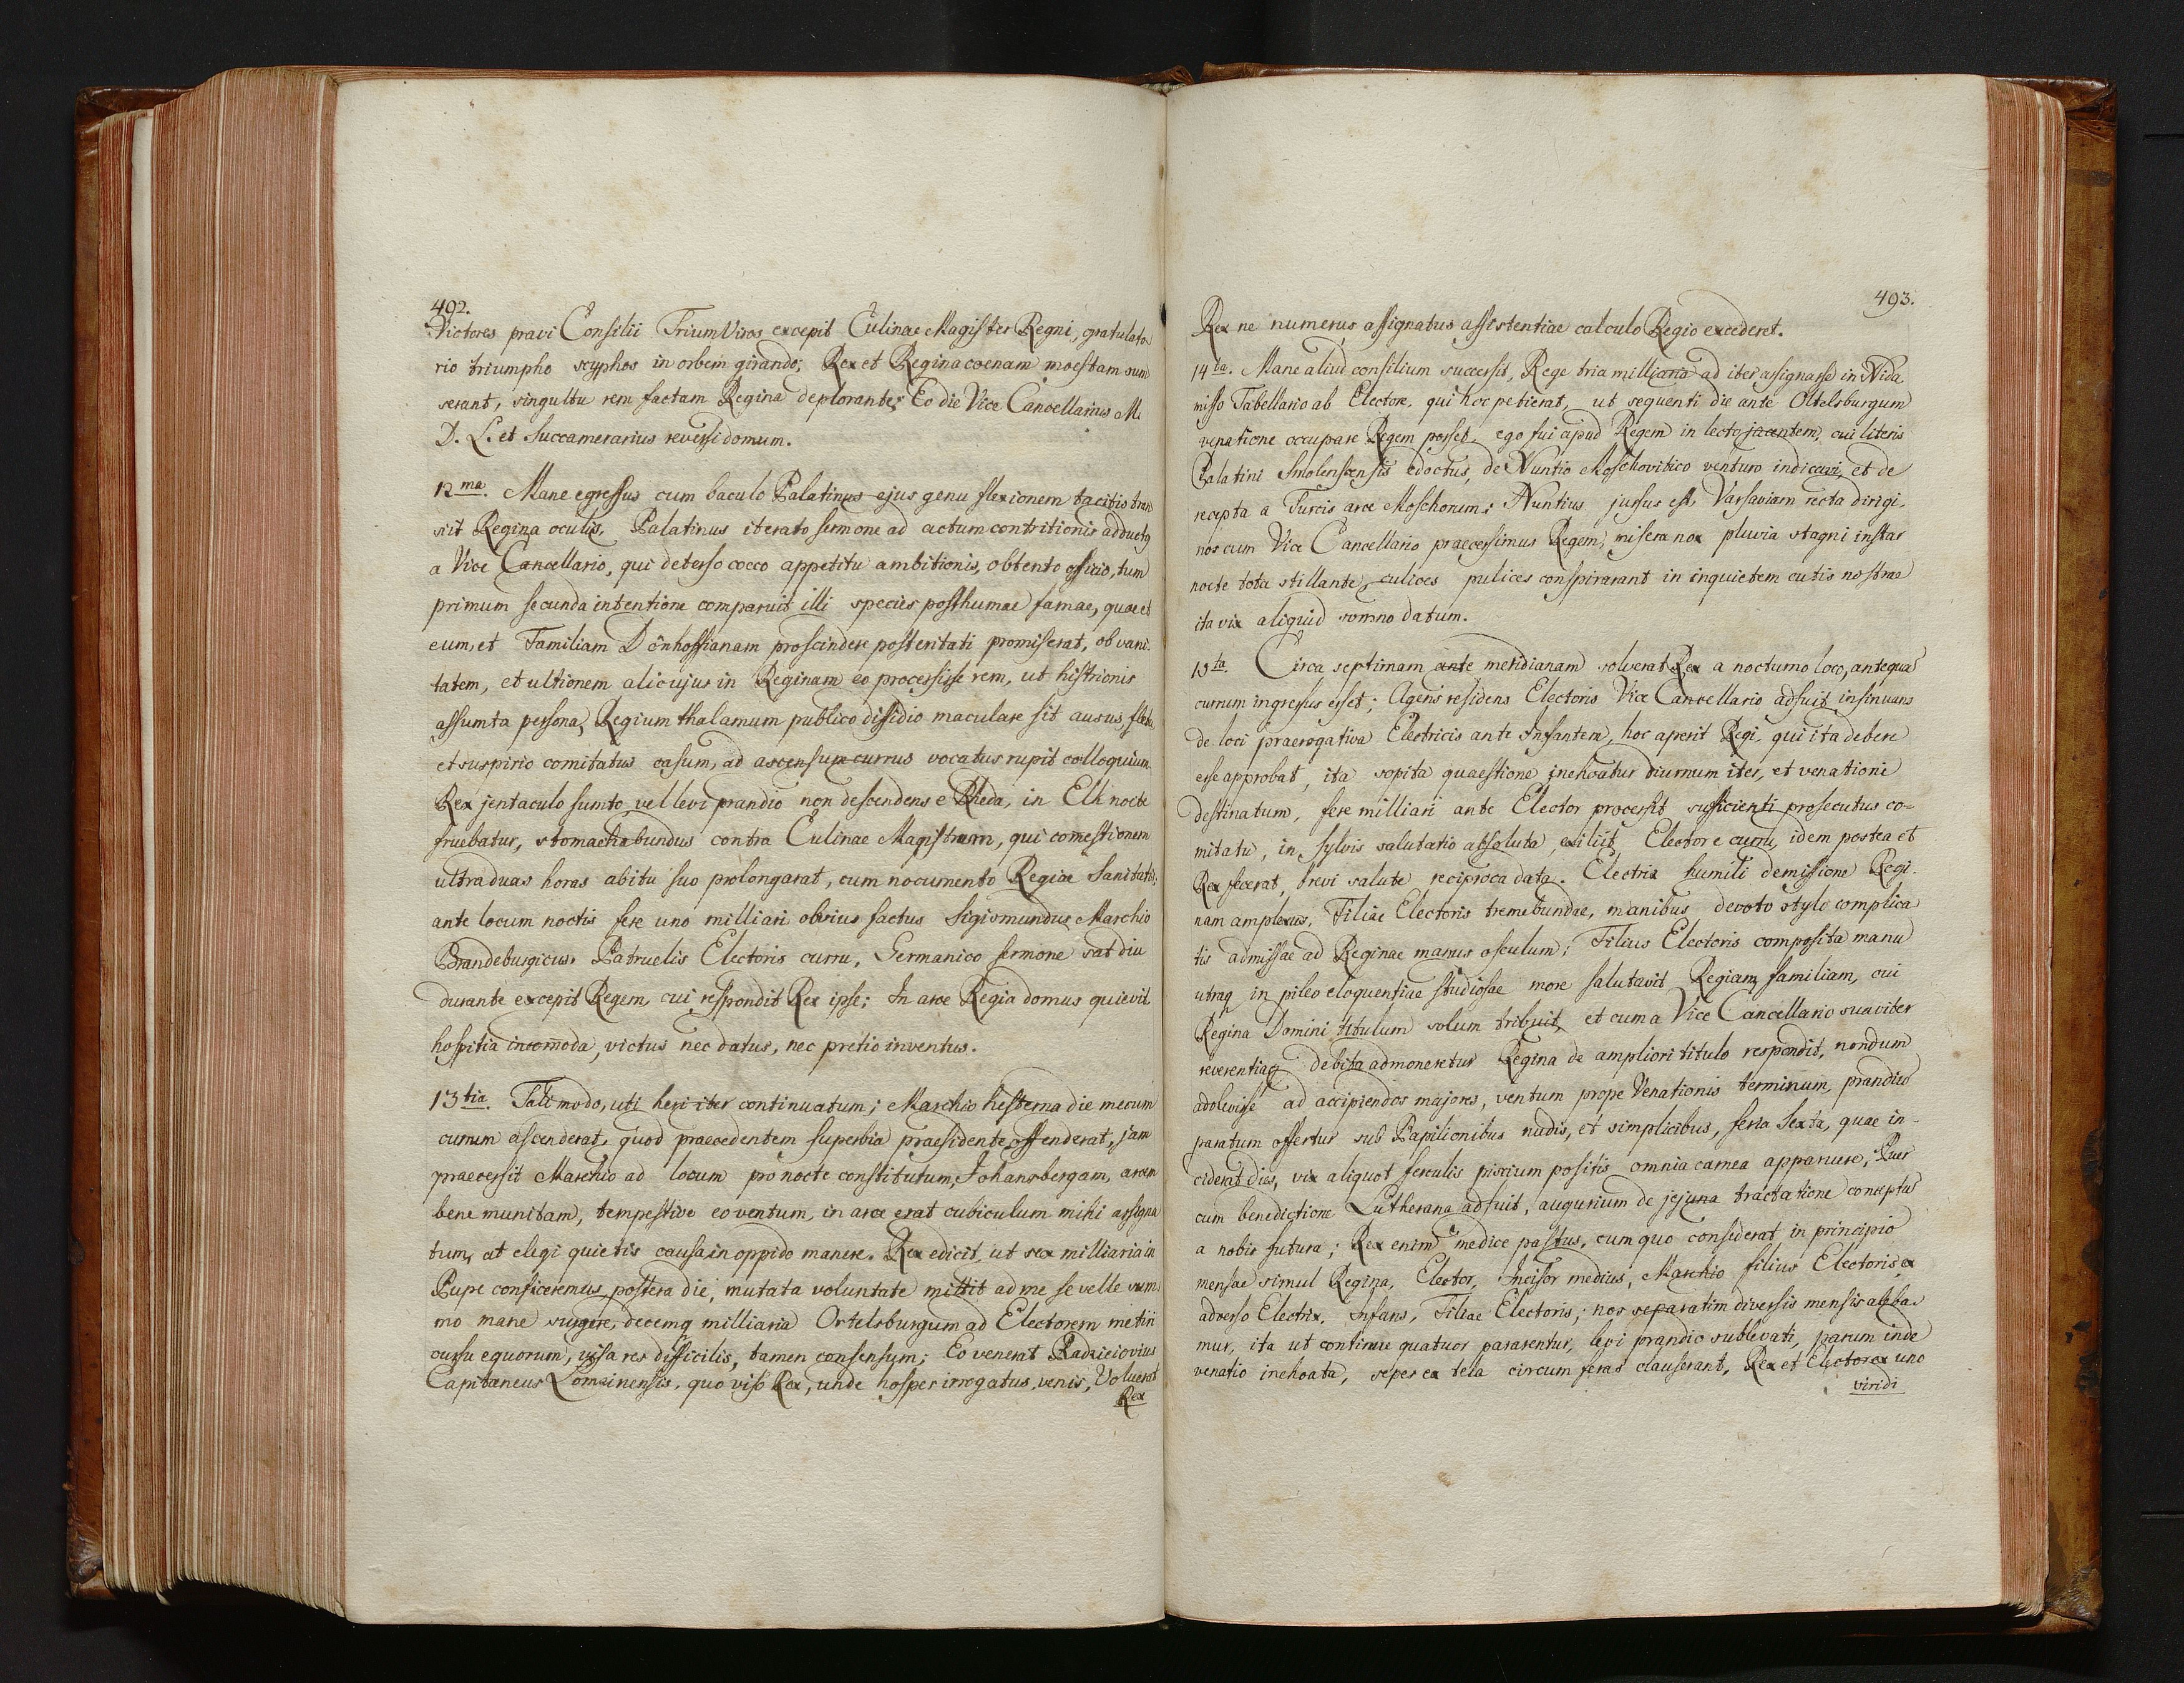 492.
Victores pravi Consilii Trium Viros excepit Culinae Magister Regni, gratulato
rio triumpho scyphos in orbem girando; Rex et Regina coenam moestam sum
serant, singultu rem factam Regina deplorante; Eo die Vice Cancellarius M.
D. L. et Succamerarius reversi domum.
12ma. Mane egressus cum baculo Palatinus ejus genu flexionem tacitis tran
siit Regina oculis, Palatinus iterato sermone ad actum contritionis adductq
a Vice Cancellario, qui deterso cocco appetitu ambitionis, obtento officio, tum
primum secunda intentione comparuit illi species posthumae famae, quae et
eum, et Familiam Dönhoffianam proscindere posteritati promiserat, ob vani
tatem, et ultionem alicujus in Reginam eo processisse rem, ut histrionis
assumta persona, Regium thalamum publico dissidio maculare sit ausus, fletu
et suspirio comitatus casum, ad ascensum currus vocatus rupit colloquium.
Rex jentaculo sumto, vel levi prandio non descendens e Rheda, in Elk nocte
fruebatur, stomachabundus contra Culinae Magistrum, qui comestionem
ultra duas horas abitu suo prolongarat, cum nocumento Regiae Sanitatis;
ante locum noctis fere uno milliari obvius factus Sigismundus Marchio
Brandeburgicus Patruelis Electoris curru, Germanico sermone sat diu
durante excepit Regem, cui respondit Rex ipse; In arce Regia domus quievit
hospitia incom̅oda, victus nec datus, nec pretio inventus.
13tia. Tali modo, uti heri iter continuatum; Marchio hesterna die mecum
currum ascenderat, quod praecedentem superbia praesidente offenderat, jam
praecessit Marchio ad locum pro nocte constitutum, Johansbergam, arcem
bene munitam, tempestive eo ventum, in arce erat cubiculum mihi assigna
tum, at elegi quietis causa in oppido manere. Rex edicit, ut sex milliaria in
Pupe conficeremus postera die, mutata voluntate mittit ad me se velle sum
mo mane surgere, decemq milliaria Ortelsburgum ad Electorem metiri
cursu equorum, visa res difficilis, tamen consensum; Eo venerat Radzieiovius
Capitaneus Lomzinensis, quo viso Rex, unde hospes irrogatus venis, Voluerat
Rex
493.
Rex ne numerus assignatus assistentiae calculo Regio excederet.
14ta. Mane aliud consilium successit, Rege tria milliaria ad iter assignasse in Nida
misso Tabellario ab Electore, qui hoc petierat, ut sequenti die ante Oltelsburgum
venatione occupare Regem posset, ego fui apud Regem in lecto jacentem, cui literis
Palatini Smolenscensis edoctus, de Nuntio Moschovitico venturo indicavi, et de
recepta a Turcis arce Moschorum; Nuntius jussus est, Varsaviam recta dirigi,
nos cum Vice Cancellario praecessimus Regem; misera nox pluvia stagni instar
nocte tota stillante, culices pulices conspirarant in inquietem cutis nostrae
ita vix aliquid somno datum.
15ta. Circa septimam ante meridianam solverat Rex a nocturno loco, antequa
currum ingressus esset; Agens residens Electoris Vice Cancellario adfuit insinuans
de loci praerogativa Electricis ante Infantem, hoc aperit Regi, qui ita debere
esse approbat, ita sopita quaestione inchoatur diurnum iter, et venationi
destinatum, fere milliari ante Elector processit sufficienti prosecutus co=
mitatu, in sylvis salutatio absoluta, exiliit, Elector e curru, idem postea et
Rex fecerat, brevi salute reciproca data. Electrix humili demissione Regi
nam amplexus, Filiae Electoris tremebundae, manibus devoto stylo complica
tis admissae ad Reginae manus osculum; Filius Electoris composita manu
utraq in pileo eloquentiae studiosae more salutavit Regiam familiam, cui
Regina Domini titulum solum tribuit, et cum a Vice Cancellario suaviter
reverentiaq debita admoneretur Regina de ampliori titulo respondit, nondum
adolevisse ad accipiendos majores, ventum prope Venationis terminum, prandium
paratum offertur sub Papilionibus nudis, et simplicibus, feria Sexta, quae in=
ciderat dies, vix aliquot ferculis piscium positis omnia carnea apparuere, Puer
cum benedictione Lutherana adfuit, augurium de jejuna tractatione conceptu
a nobis futura; Rex enim medice pastus, cum quo considerat in principio
mensae simul Regina, Elector, Incisor medius, Marchio filius Electoris, ex
adverso Electrix, Infans, Filiae Electoris; nos separatim diversis mensis aleba-
mur, ita ut continue quatuor pararentur, levi prandio sublevati, parum inde
venatio inchoata, sepes ex tela circum feras clauserant, Rex et Elector ex uno
viridi